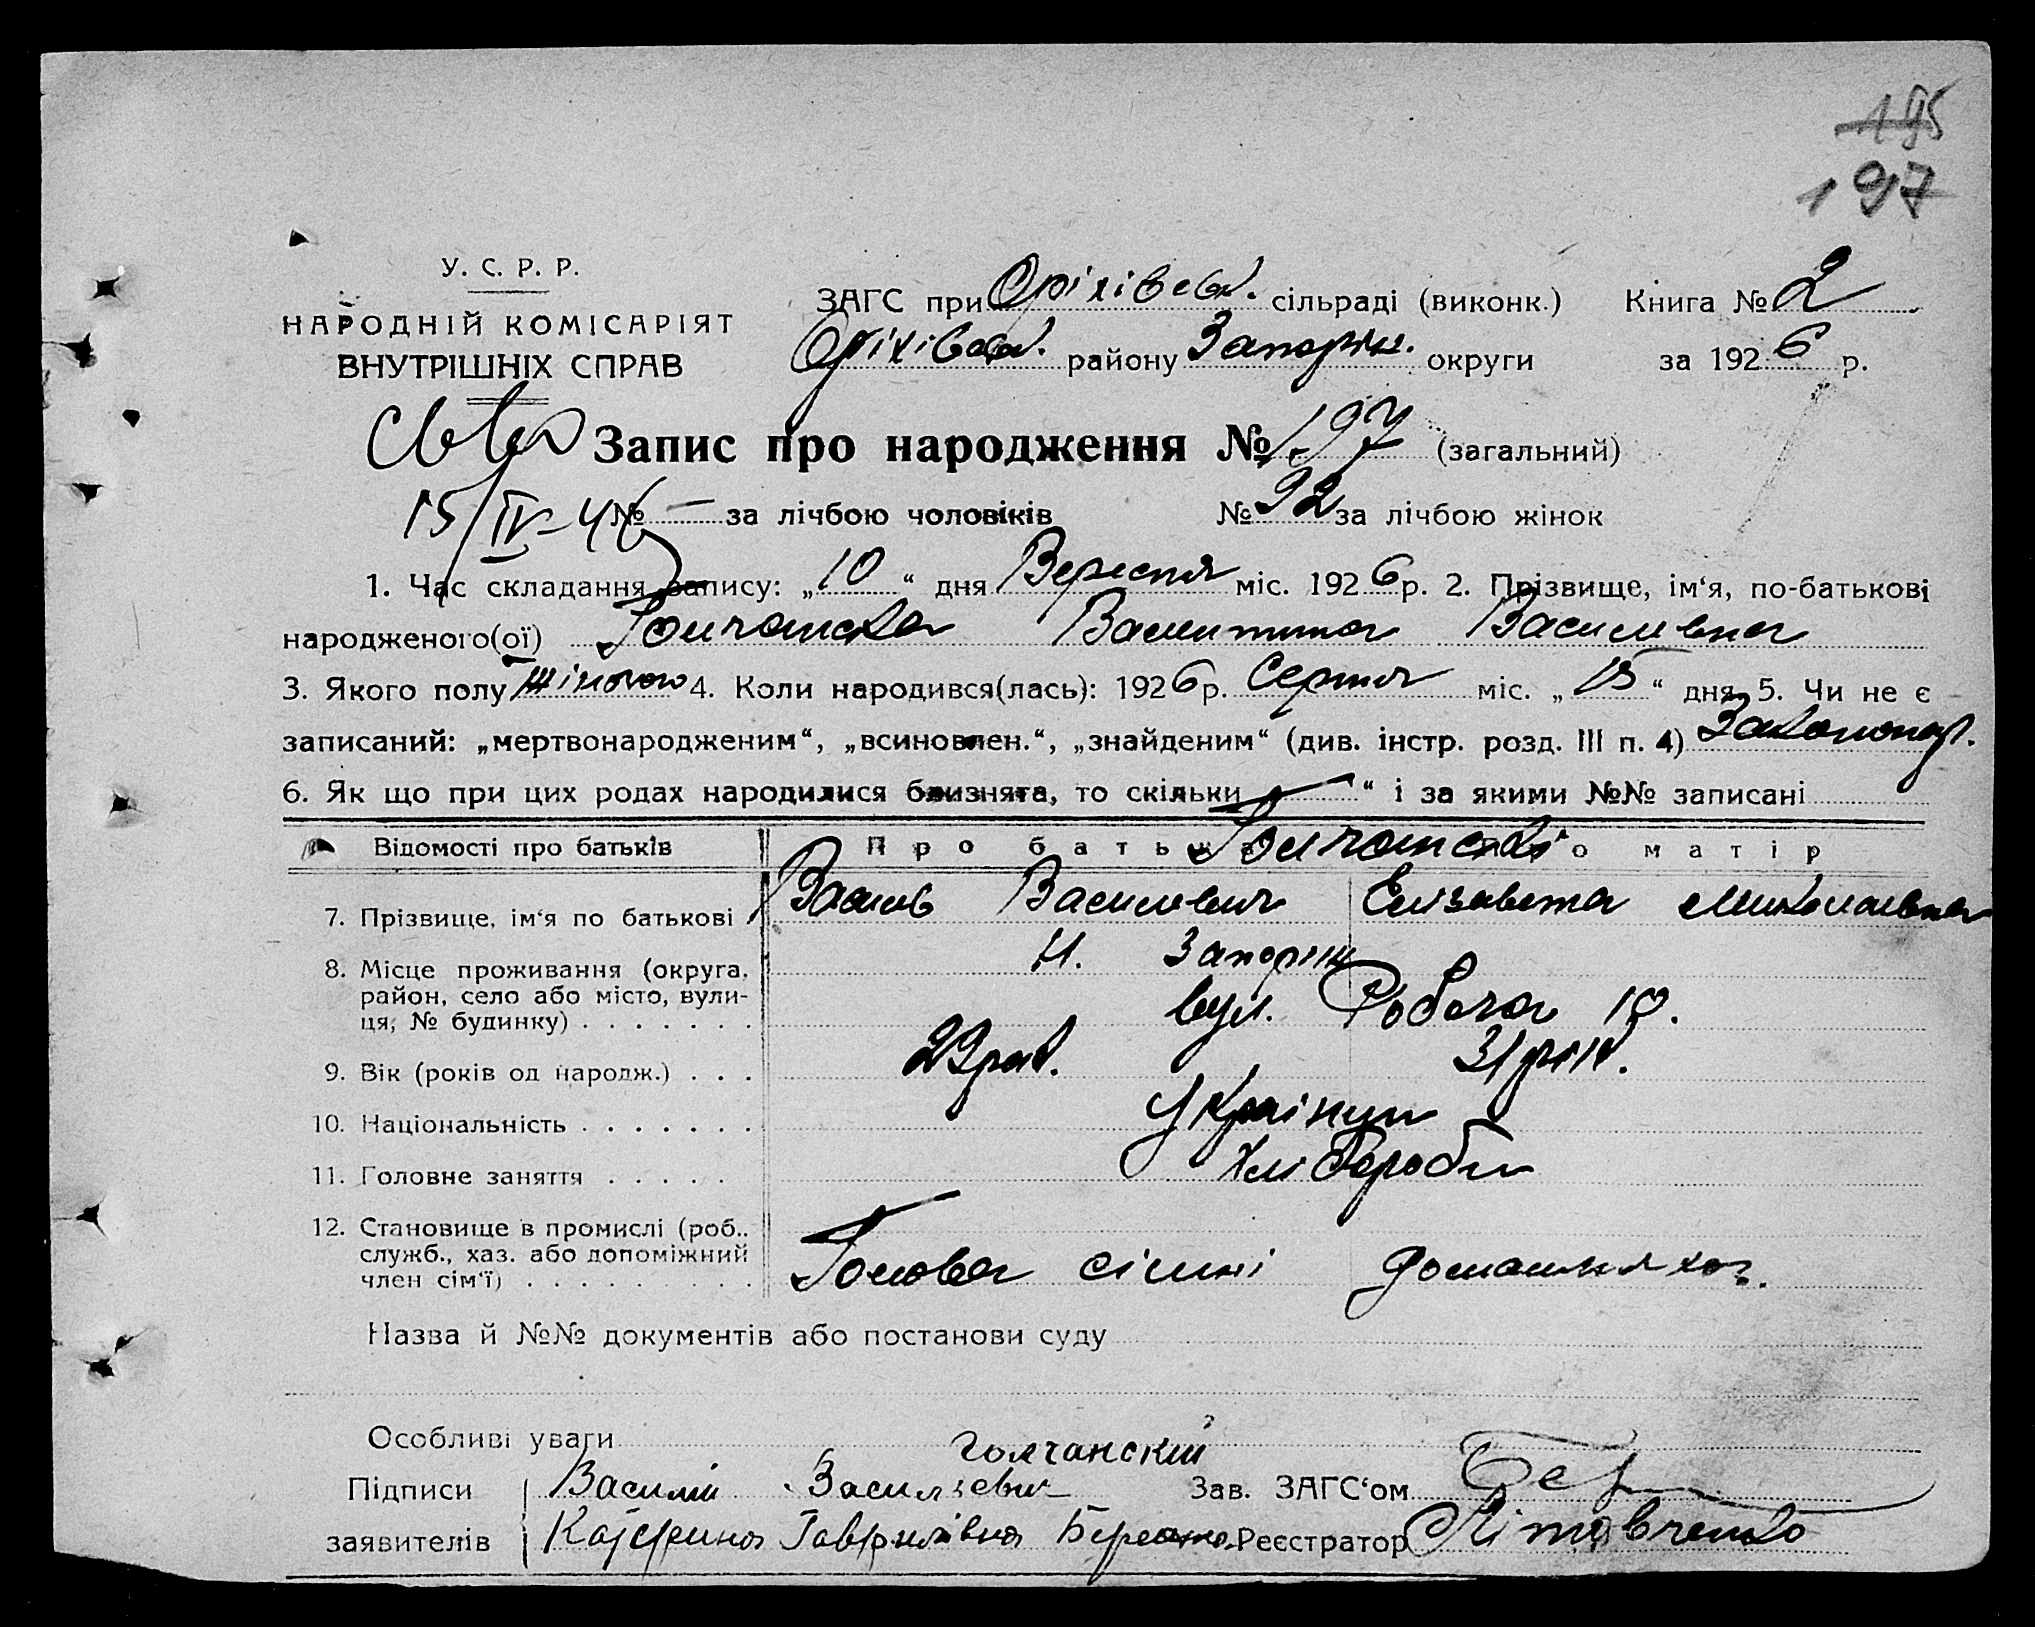 195
197
У. С. Р. Р.
НАРОДНІЙ КОМІСАРІЯТ
ВНУТРІШНІХ СПРАВ
ЗАГС при Оріхівськ. сільраді (виконк.) Книга № 2
Оріхівськ. району Запоріж. округи за 1926 р.
Запис про народження № 197 (загальний)
15/IV-46 № — за лічбою чоловіків № 92 за лічбою жінок
1. Час складання запису: „10“ дня Вересня міс. 1926 р. 2. Прізвище, ім‘я, по-батькові
народженого(ої) Голчанська Валентина Василівна
3. Якого полу жіночого 4. Коли народився(лась): 1926 р. Серпня міс. „15“ дня 5. Чи не є
записаний: „мертвонародженим“, „всиновлен.“, „знайденим“ (див. інстр. розд. III п. 4) Закононар.
6. Як що при цих родах народилися близнята, то скільки — “ і за якими №№ записані
Відомості про батьків Про батька Про матір
Голчанські
7. Прізвище, ім‘я по батькові Василь Васильович Елізавета Миколаївна
8. Місце проживання (округа, район, село або місто, вули-ця, № будинку) Н. Запоріж
вул. Робоча 10.
9. Вік (років од народж.) 29 рок. 31 рік.
10. Національність Українці
11. Головне заняття Хлібороби
12. Становище в промислі (роб., служб., хаз. або допоміжний член сім‘ї) Голова сімні домашня хоз.
Назва й №№ документів або постанови суду
Особливі уваги
Голчанский
Підписи Василий Васильевич Зав. ЗАГС‘ом
заявителів Катерина Гаврилівна Реєстратор Літовченко